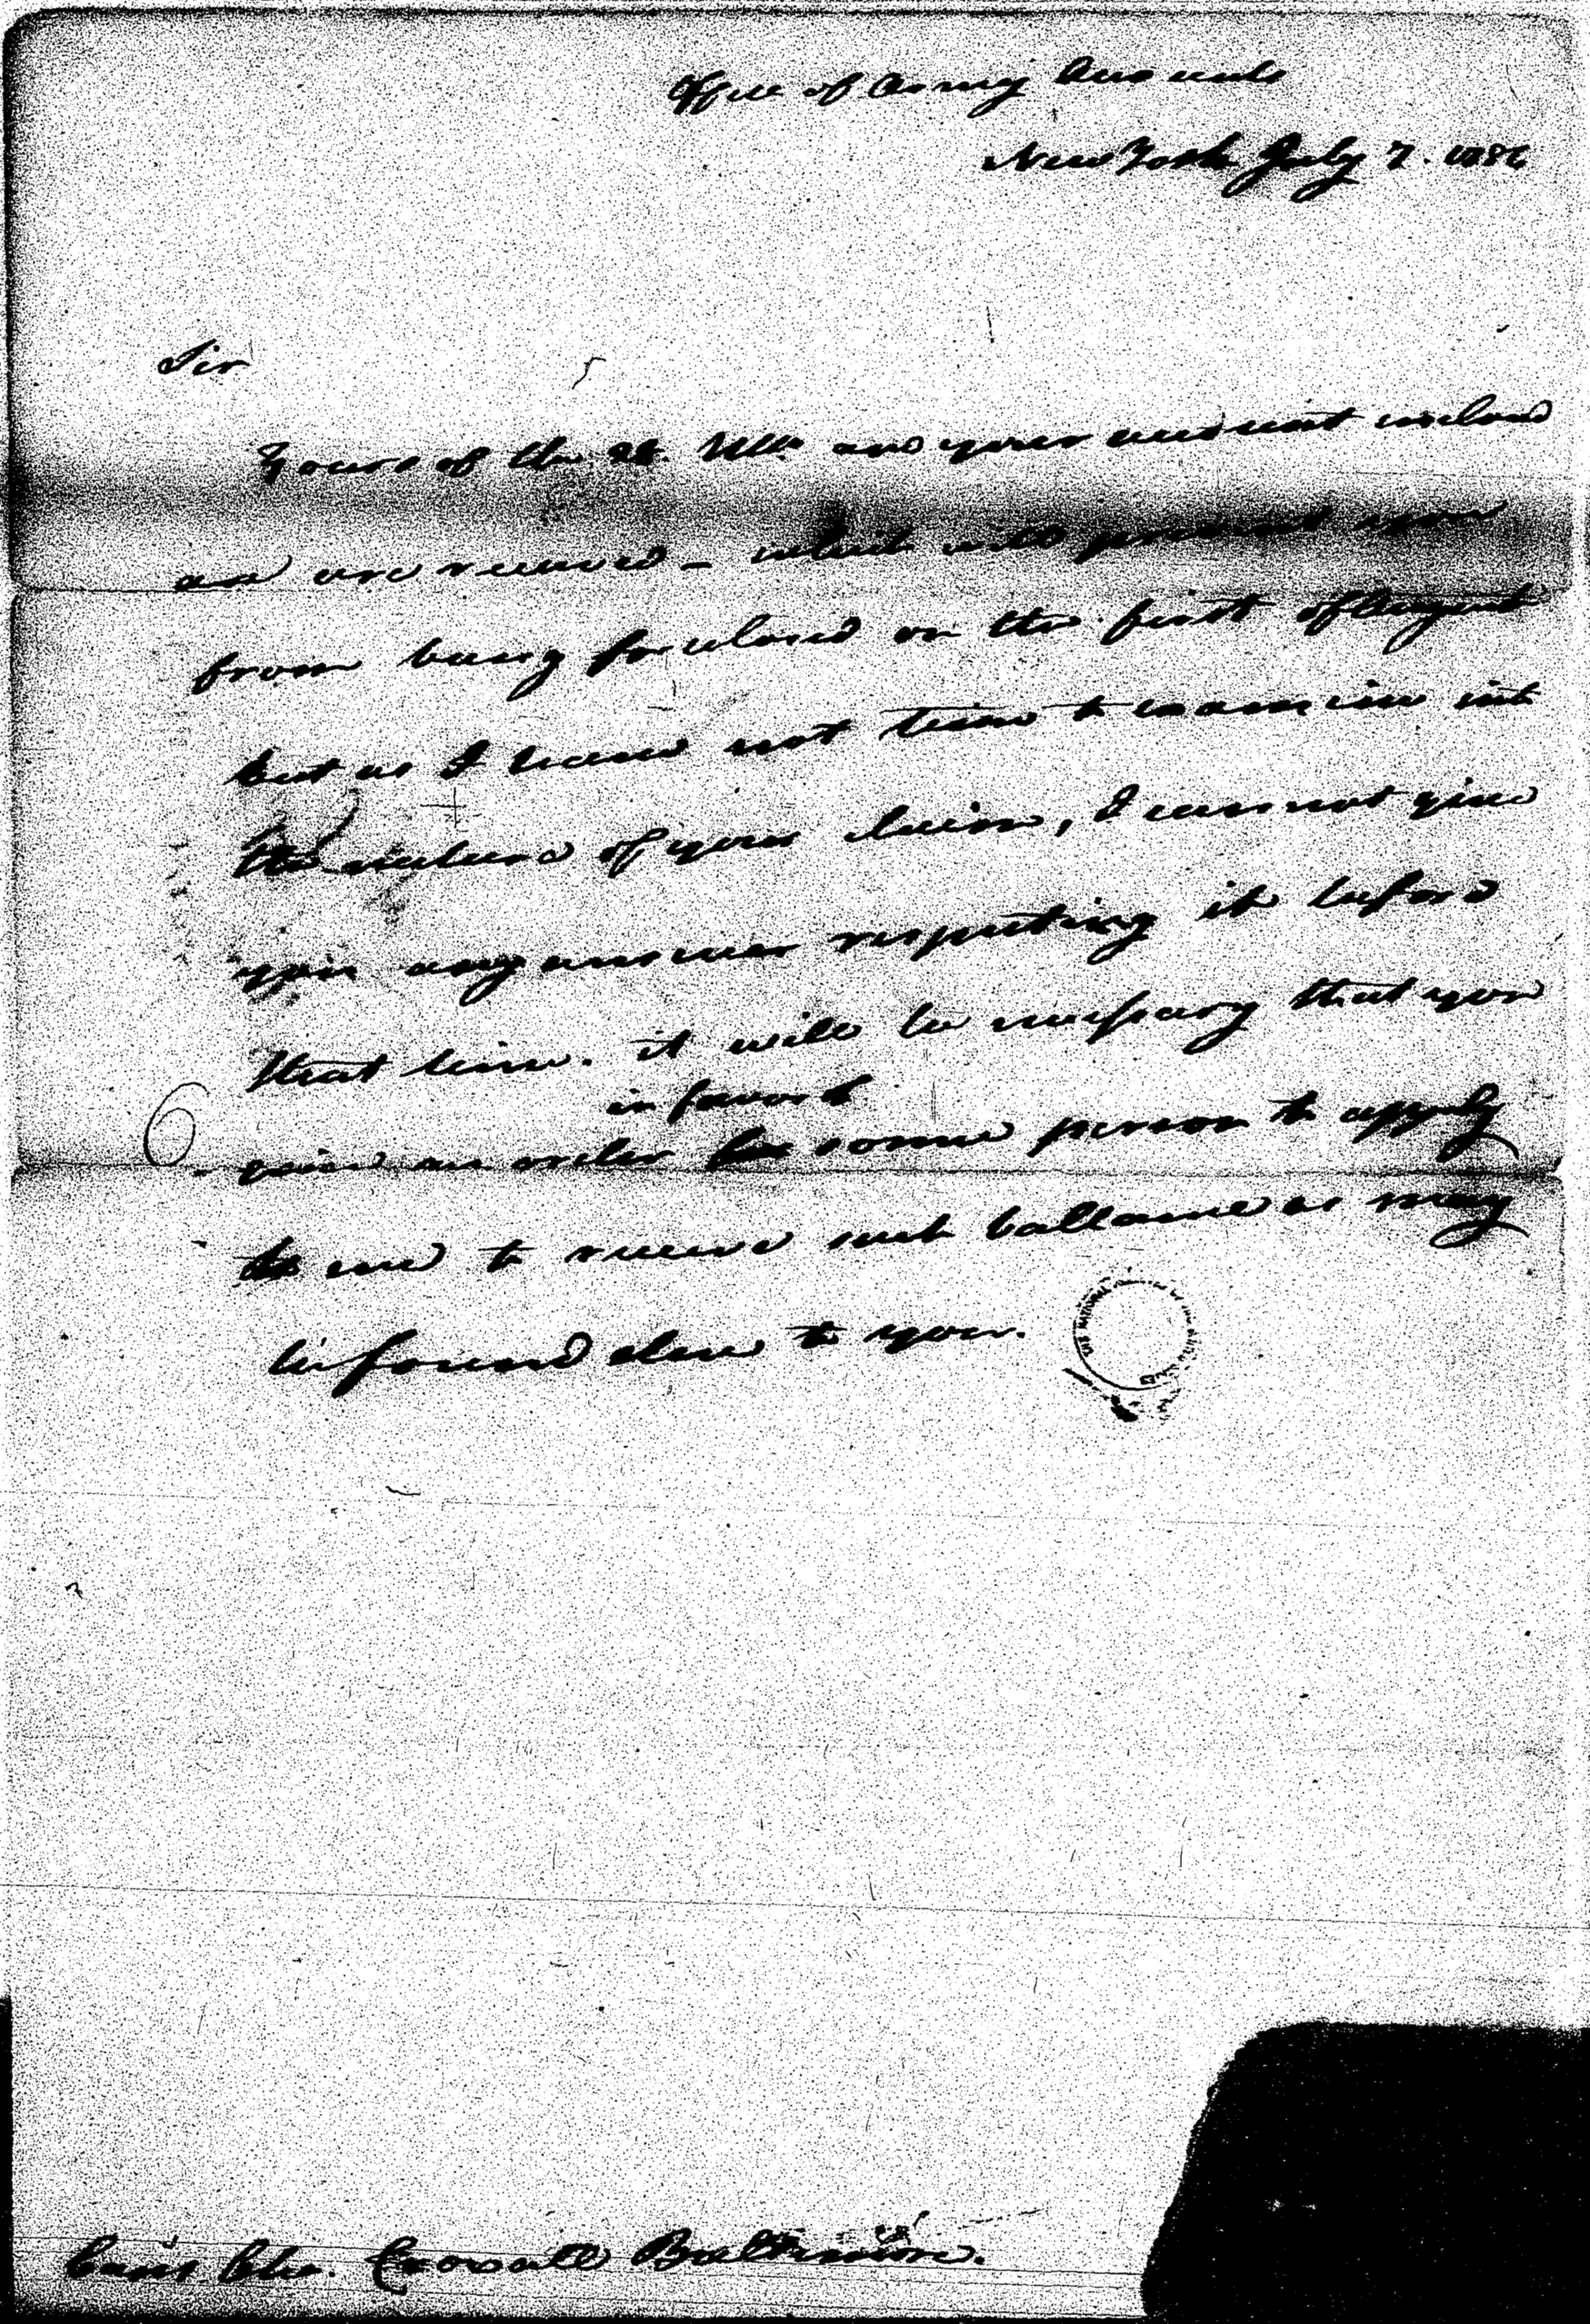 Office of Army Accounts
New York July 7. 1786
Sir
Yours of the 28. Ulto and your account inclosed
are received - which will prevent you
from being foreclosed on the first of August
but as I have not time to examine into
the nature of your claim, I cannot give
you any answer respecting it before
that time. it will be necessary that you
in favor of
give an order some person to apply
to me to receive such ballance as may
be found due to you.
6
Baltimore.